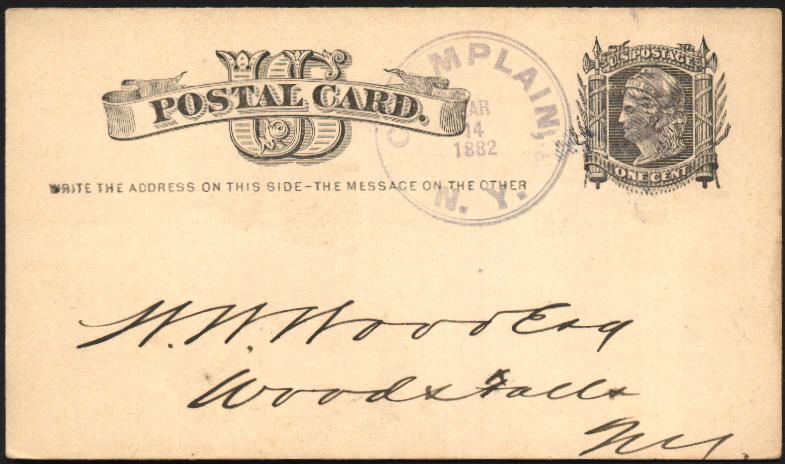 US
POSTAL CARD.
WRITE THE ADDRESS ON THIS SIDE–THE MESSAGE ON THE OTHER
CHAMPLAIN,
MAR
14
1882
N. Y.
U.S. POSTAGE
ONE CENT
W. W. Wood Esq
Woods Falls
NY.